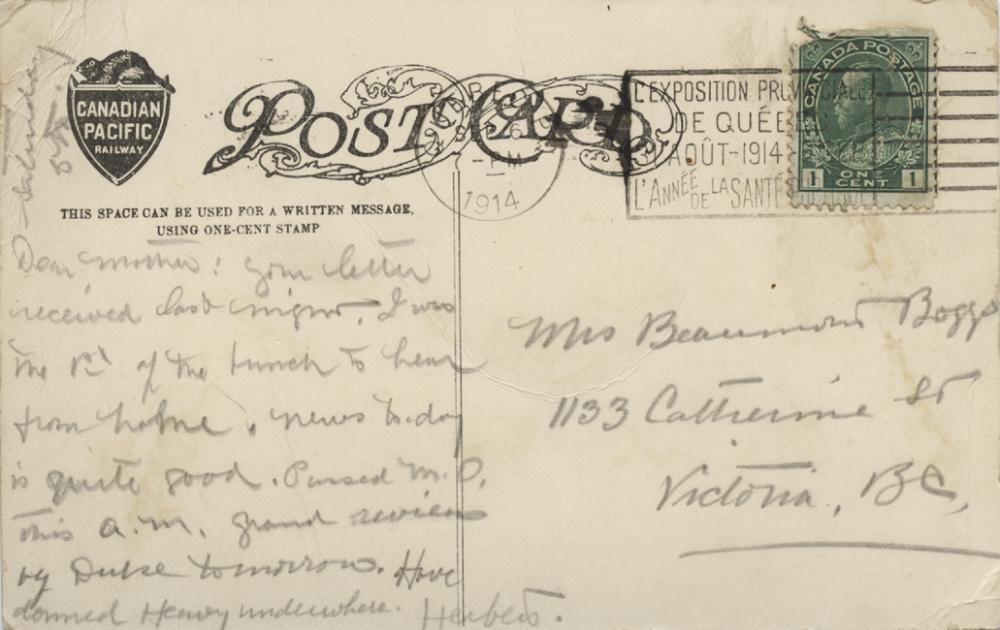 CANADIAN
PACIFIC
RAILWAY
POST CARD
1914
L'EXPOSITION PROVINCIALE
DE QUÉBEC
AOÛT-1914
L'ANNÉE DE LA SANTÉ
CANADA POSTAGE
1 ONE CENT 1
THIS SPACE CAN BE USED FOR A WRITTEN MESSAGE,
USING ONE-CENT STAMP
Dear Mother: Your letter
received last night. I was
the 1st of the bunch to hear
from home. news today
is quite good. Passed M.O.
this a.m. grand review
by Duke tomorrow. Have
donned Heavy underwhere. Herbert.
Mrs Beaumont Boggs
1133 Catherine St
Victoria, BC,